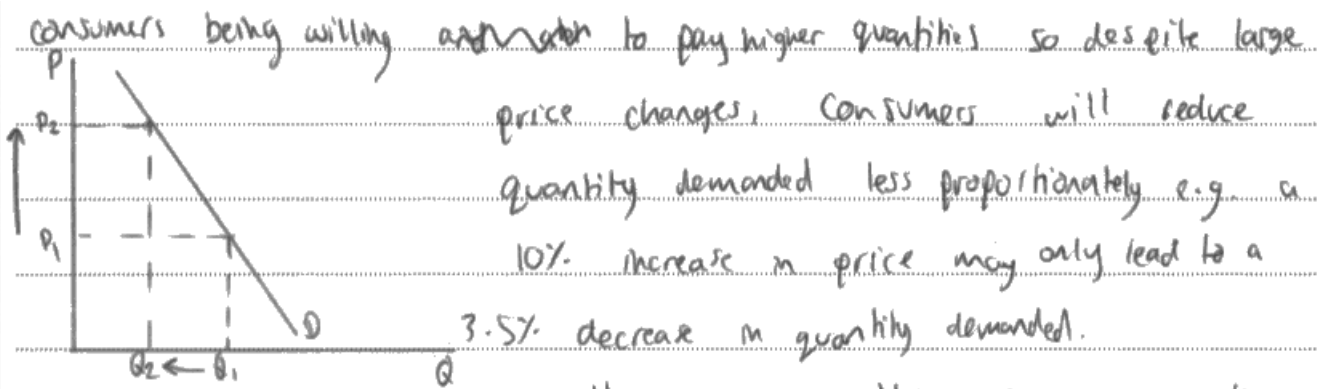 consumers being willing to pay higher quantities so despite large
P
P2
price changes, Consumers will reduce
quantity demanded less proportionately e.g. a
P1
10% increase in price may only lead to a
D
3.5% decrease in quantity demanded.
Q2 ← Q1
Q